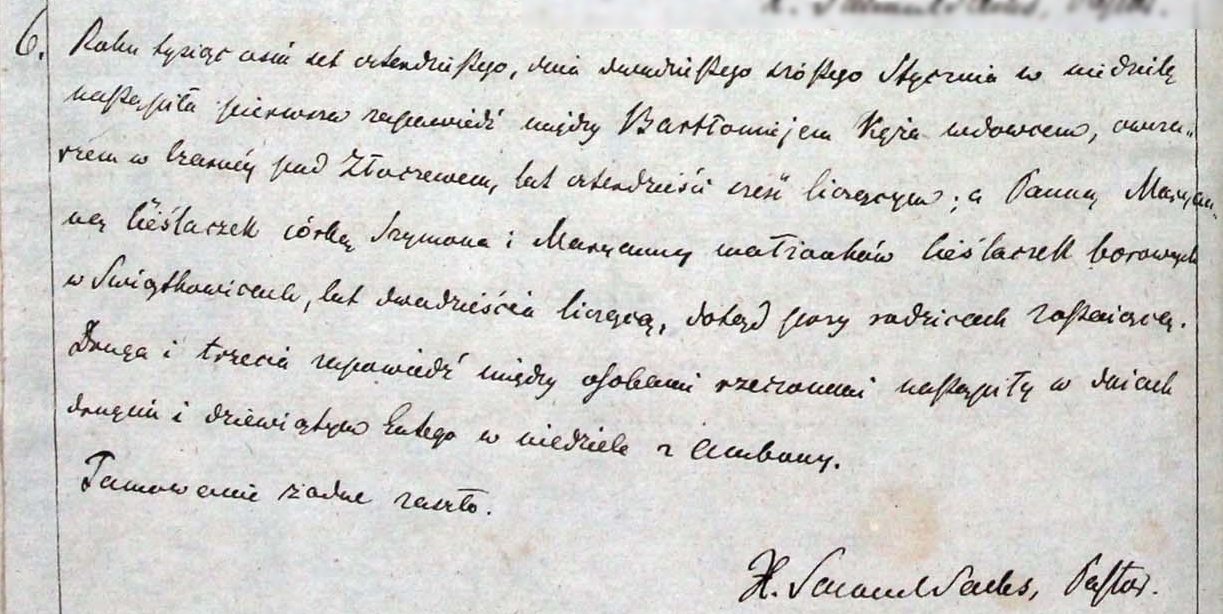 6. Roku tysiąc osiem set czterdziestego, dnia dwudziestego szóstego Stycznia w niedzielę
nastąpiła pierwsza zapowiedź między Bartłomiejem Kęza wdowcem, owcza„
rzem w Czarnéy pod Złoczewem, lat czterdzieści sześć liczącym; a Panną Maryan„
ną Cieślaczek córką Szymona i Maryanny małżonków Cieślaczek borowych
w Swiątkowicach, lat dwadzieścia liczącą, dotąd przy rodzicach zostaiącą.
Druga i trzecia zapowiedź między osobami rzeczonemi nastąpiły w dniach
drugim i dziewiątym Lutego w niedziele z Ambony.
Tamowanie żadne zaszło.
X. Samuel Sachs, Pastor.